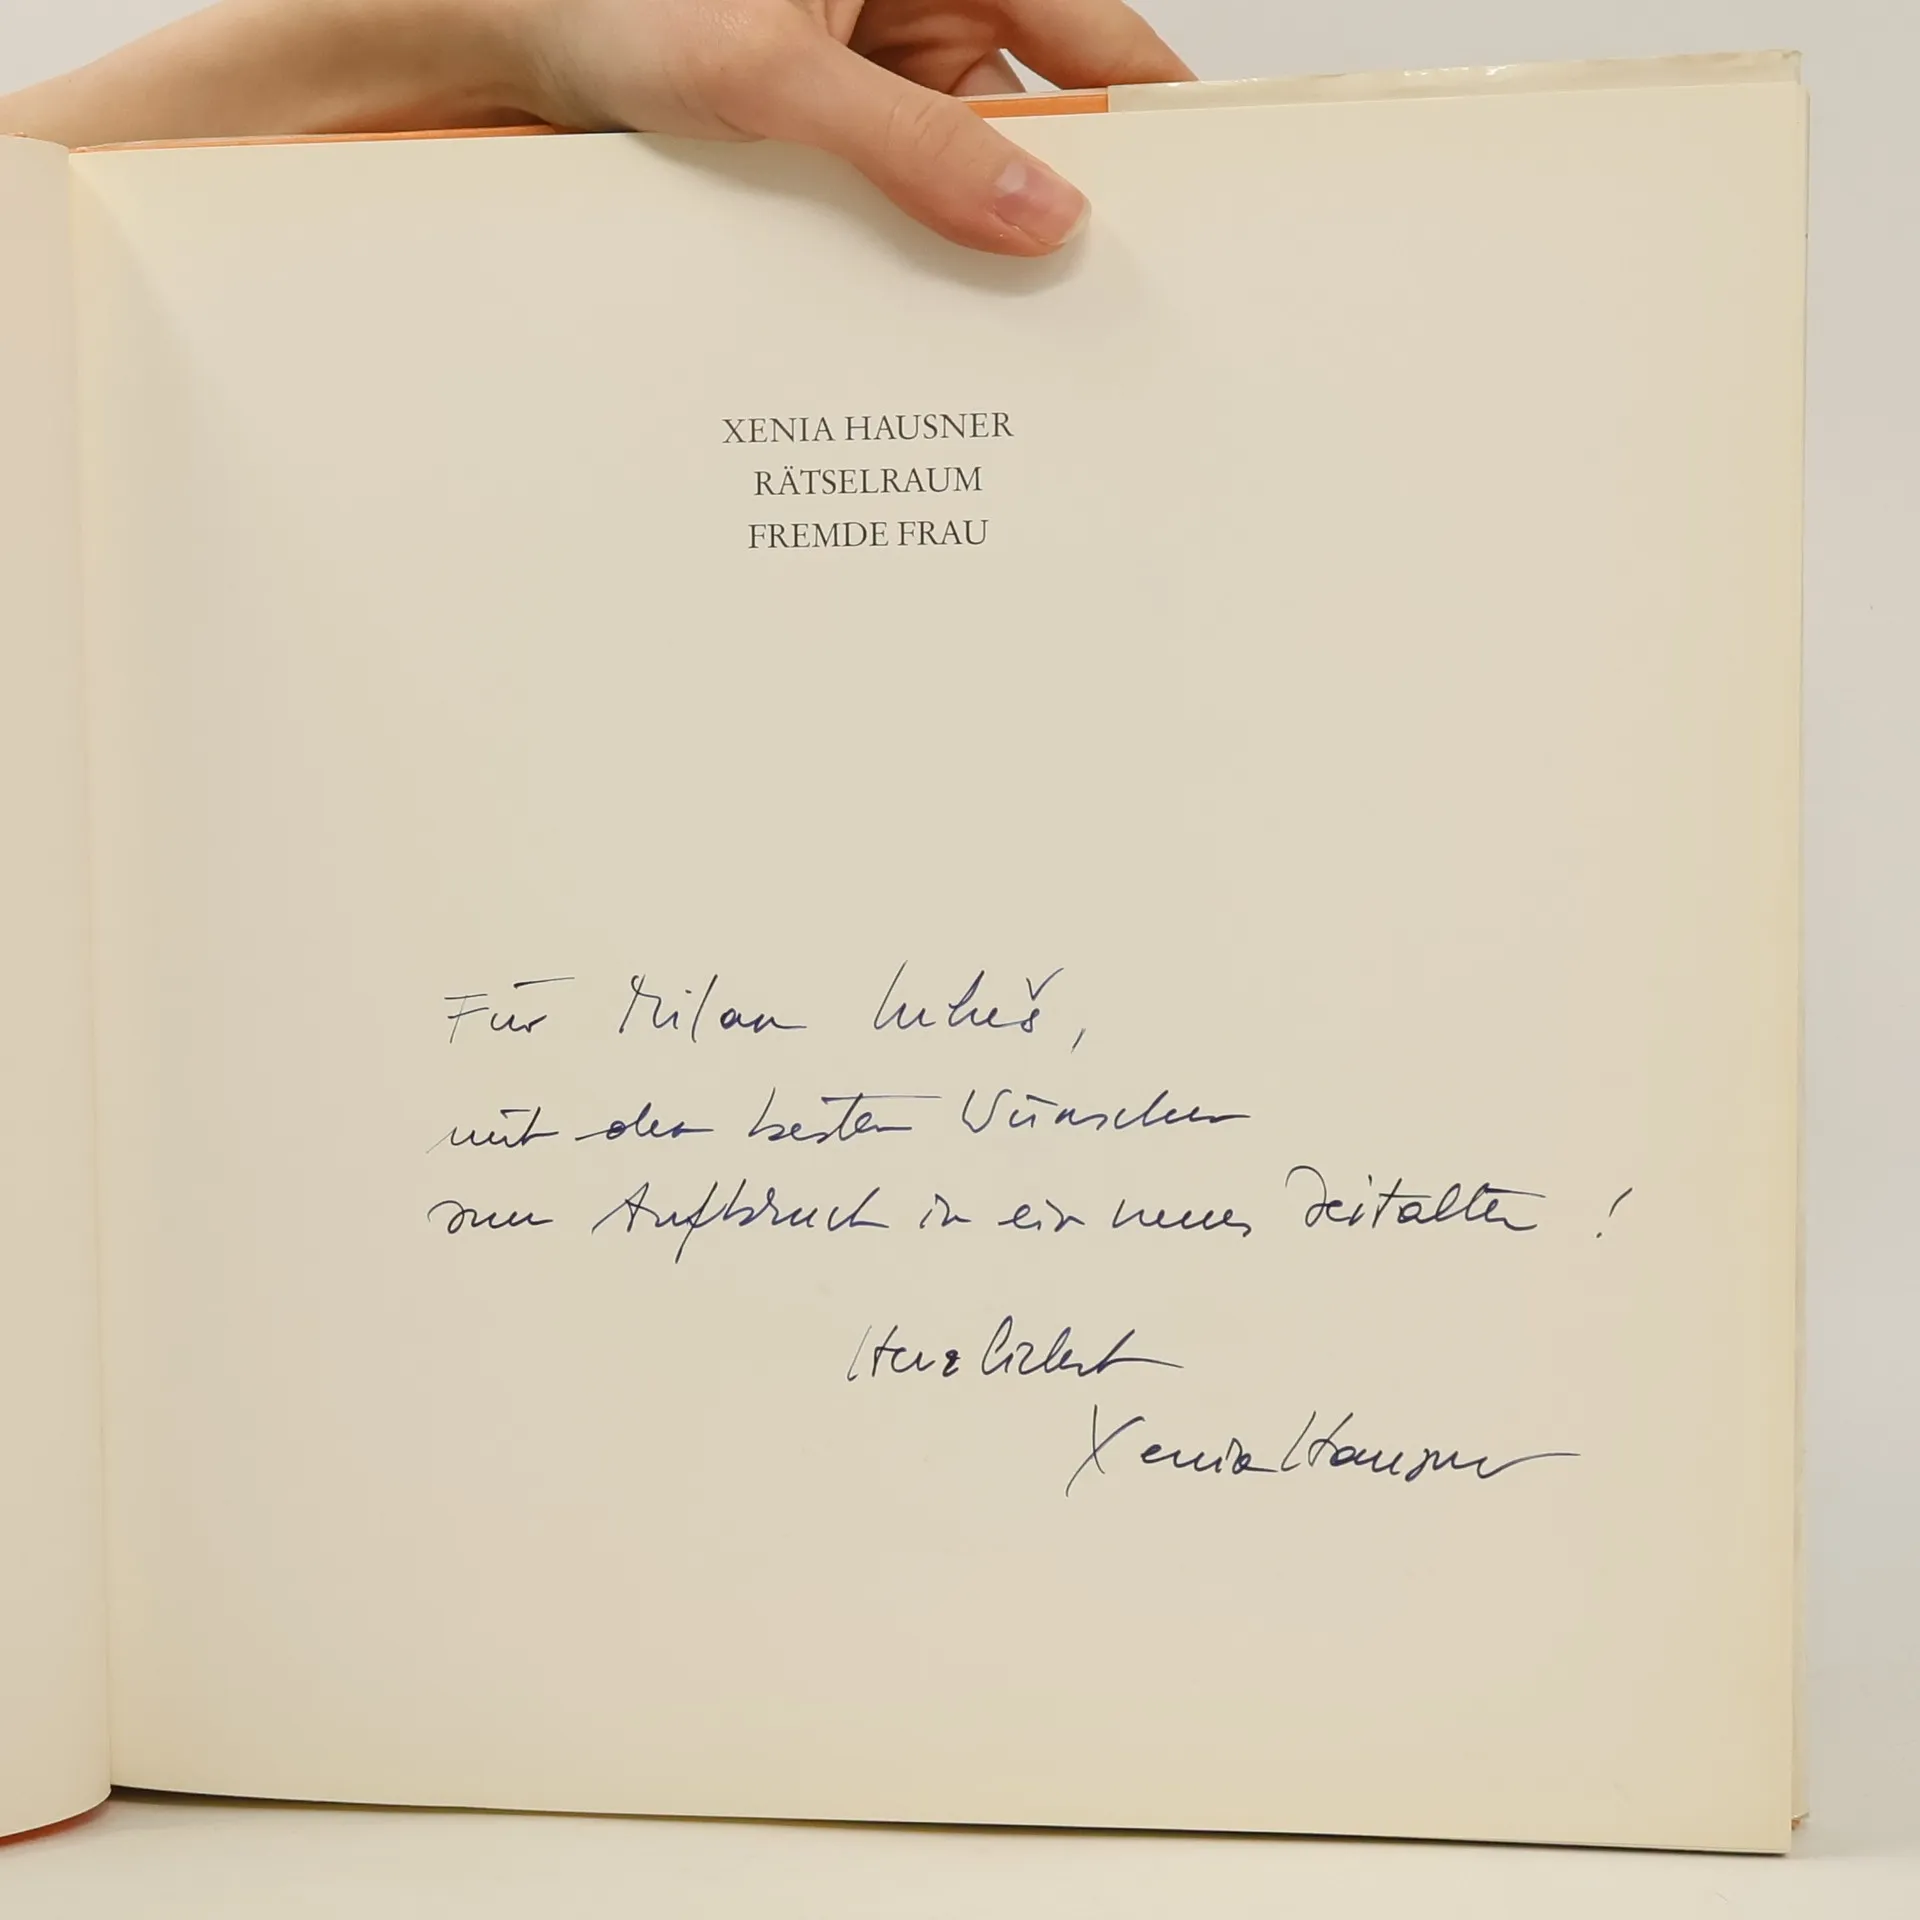 XENIA HAUSNER
RÄTSELRAUM
FREMDE FRAU
Für Milan Lukeš,
mit den besten Wünschen
zum Aufbruch in ein neues Zeitalter !
Herzlichst
Xenia Hausner